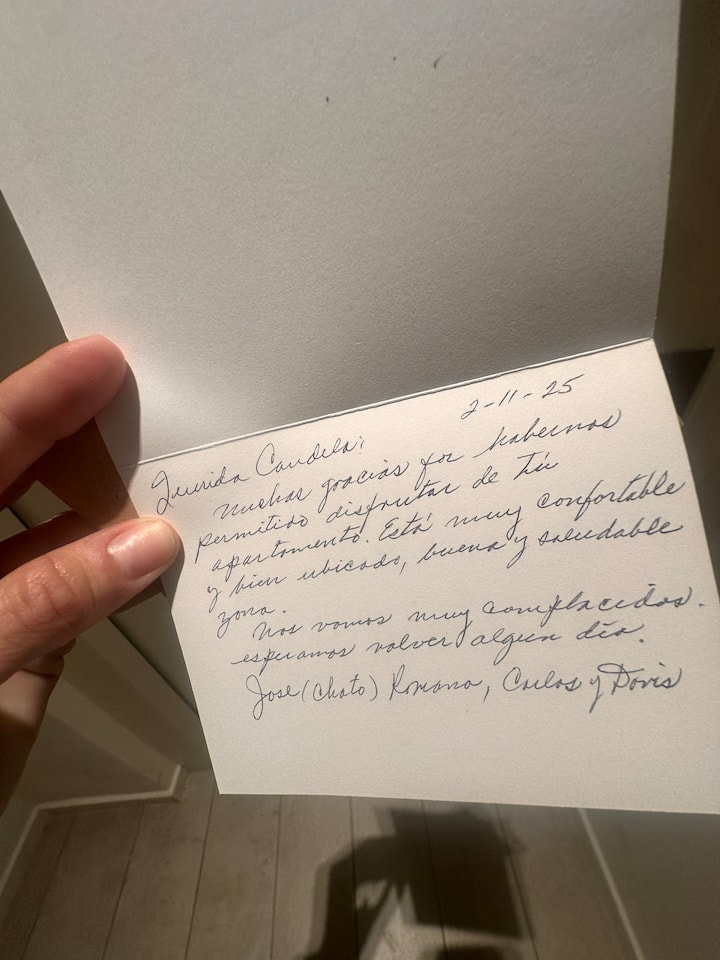 2-11-25
Querida Candela:
Muchas gracias por habernos
permitido disfrutar de tú
apartamento. Está muy confortable
y bien ubicado, buena y saludable
zona.
Nos vamos muy complacidos.
esperamos volver algún día.
José (Chato) Romana, Carlos y Doris